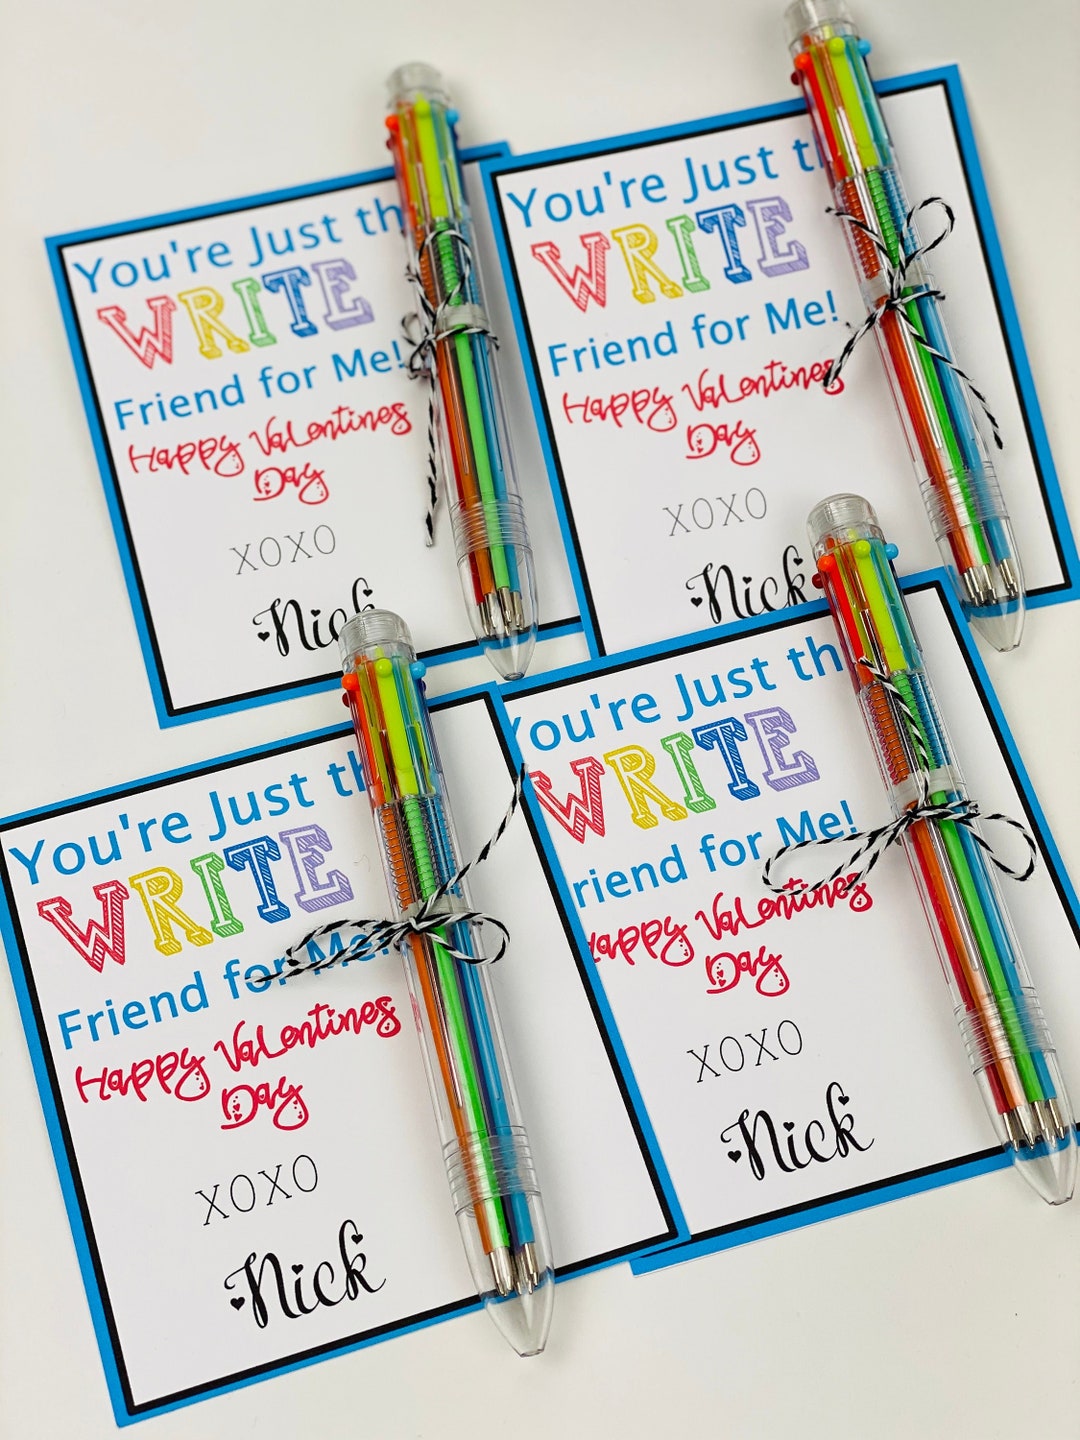 You're Just th
WRITE
Friend for Me!
Happy Valentines
Day
XOXO
Nick
You're Just th
WRITE
Friend for Me!
Happy Valentines
Day
XOXO
Nick
You're Just th
WRITE
Friend for Me!
Happy Valentines
Day
XOXO
Nick
You're Just th
WRITE
riend for Me!
Happy Valentines
Day
XOXO
Nick